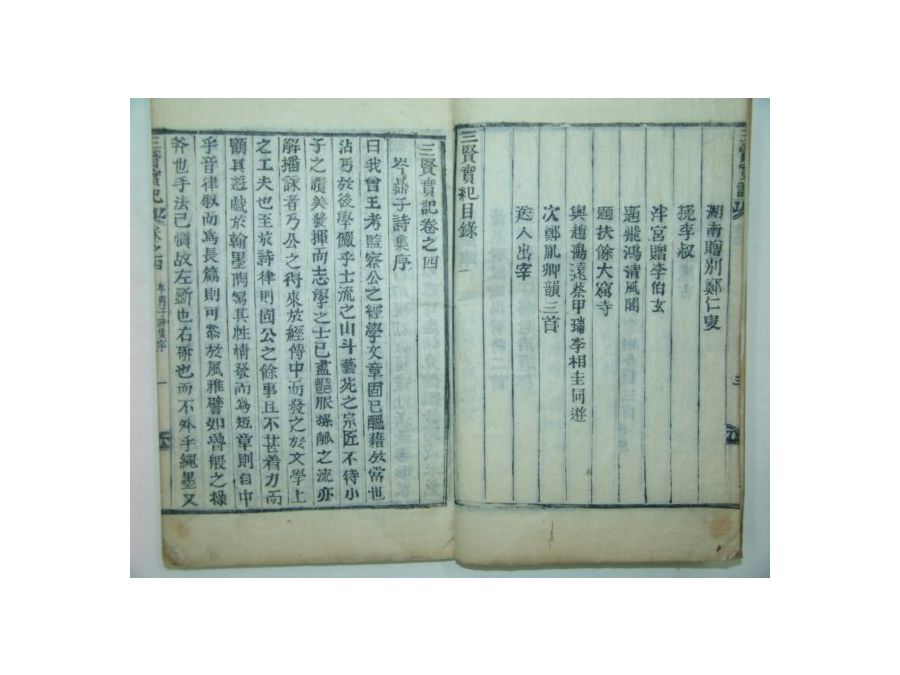 三賢實記
湖南贈別鄭仁叟
挽李叔
泮宮贈李伯玄
過飛鴻清風閣
題扶餘大寫寺
與趙鵠遠蔡甲瑞李相圭同遊
次鄭胤卿韻三首
送人出宰
三賢實紀目錄
三賢實記卷之四
岑鼎子詩集序
曰我曾王考監察公之經學文章固已醞藉於當世
沾丐於後學儼乎士流之山斗藝苑之宗匠不待小
子之讚美發揮而志學之士已盡艷服操觚之流亦
解播詠者乃公之得來於經傳中而發之於文學上
之工夫也至於詩律則固公之餘事且不甚着力而
顧其遊戱於翰墨陶寫其性情發而為短章則自中
乎音律叙而為長篇則可黍於風雅譬如魯般之祿
斧也手法已慣故左斷也右斫也而不外乎繩墨又
三賢實記 卷之四 岑鼎子詩集序 一